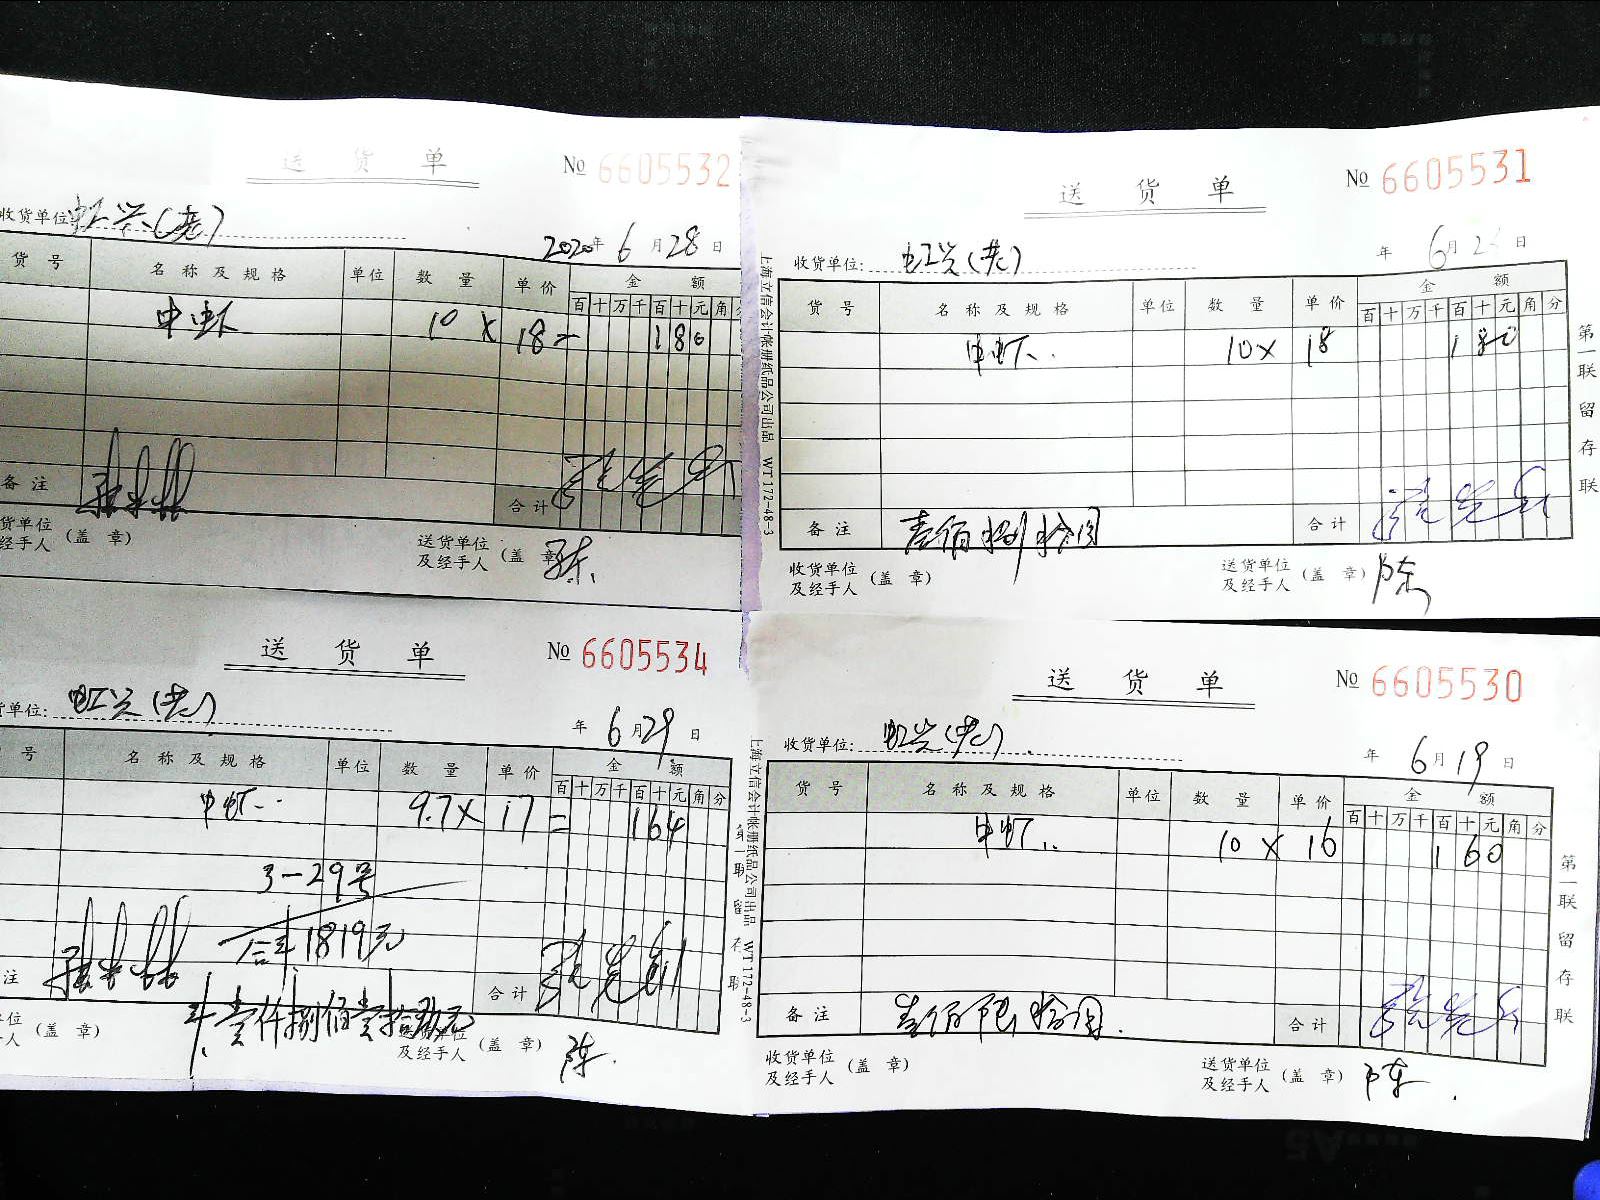 送货单
№ 6605532
收货单位
2020年6月28日
货号 名称及规格 单位 数量 单价 金额
百十万千百十元角
中虾 10 x 18 = 180
备注
合计
货单位
经手人 (盖章)
送货单位
及经手人 (盖章) 陈
送货单
№ 6605531
收货单位: 虹兴
年6月2 日
货号 名称及规格 单位 数量 单价 金额
百十万千百十元角分
中虾 10 x 18 180
备注 壹佰捌拾圆
合计
收货单位
及经手人 (盖章)
送货单位
及经手人 (盖章) 陈
第一联 留存联
上海立信会计帐册纸品公司出品 WT172-48-3
送货单
№ 6605534
货单位: 虹兴
年6月29日
号 名称及规格 单位 数量 单价 金额
百十万千百十元角分
中虾 9.7 x 17 = 164
3-29号
合计1819元
注
合计
壹仟捌佰壹拾玖元
单位
人 (盖章)
送货单位
及经手人 (盖章) 陈
第一联 留存联
送货单
№ 6605530
收货单位: 虹兴
年6月19日
货号 名称及规格 单位 数量 单价 金额
百十万千百十元角分
中虾 10 x 16 160
备注 壹佰陆拾圆
合计
收货单位
及经手人 (盖章)
送货单位
及经手人 (盖章) 陈
第一联 留存联
上海立信会计帐册纸品公司出品 WT172-48-3